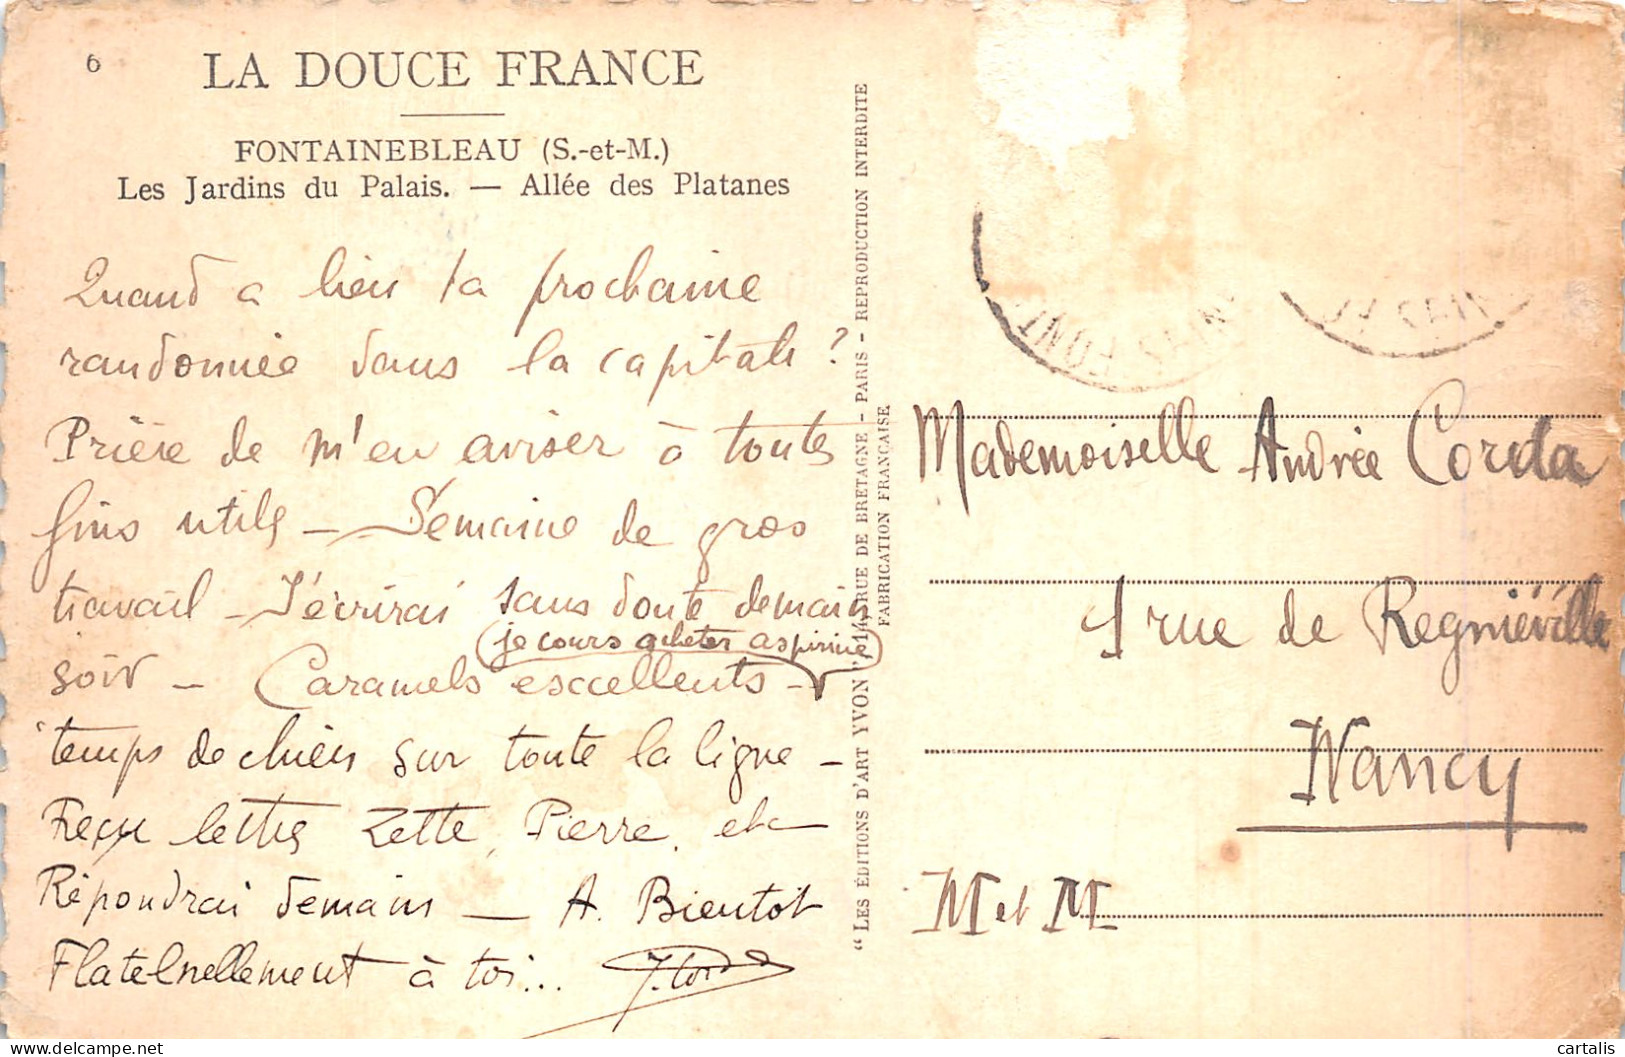 6
LA DOUCE FRANCE
FONTAINEBLEAU (S.-et-M.)
Les Jardins du Palais. — Allée des Platanes
Quand a lieu ta prochaine
randonnée dans la capitale ?
Prière de m'en aviser à toutes
fins utiles — Semaine de gros
travail — J'écrirai sans doute demain
(je cours acheter aspirine)
soir — Caramels exccellents —
temps de chien sur toute la ligne —
Reçu lettres Zette, Pierre, etc
Répondrai demain — A. Bientôt
Flatelnellement à toi...
J. Corda
"LES ÉDITIONS D'ART YVON", 14, RUE DE BRETAGNE - PARIS - REPRODUCTION INTERDITE
FABRICATION FRANÇAISE
Mademoiselle Andrée Corda
1 rue de Regniéville
Nancy
M et M
cartalis